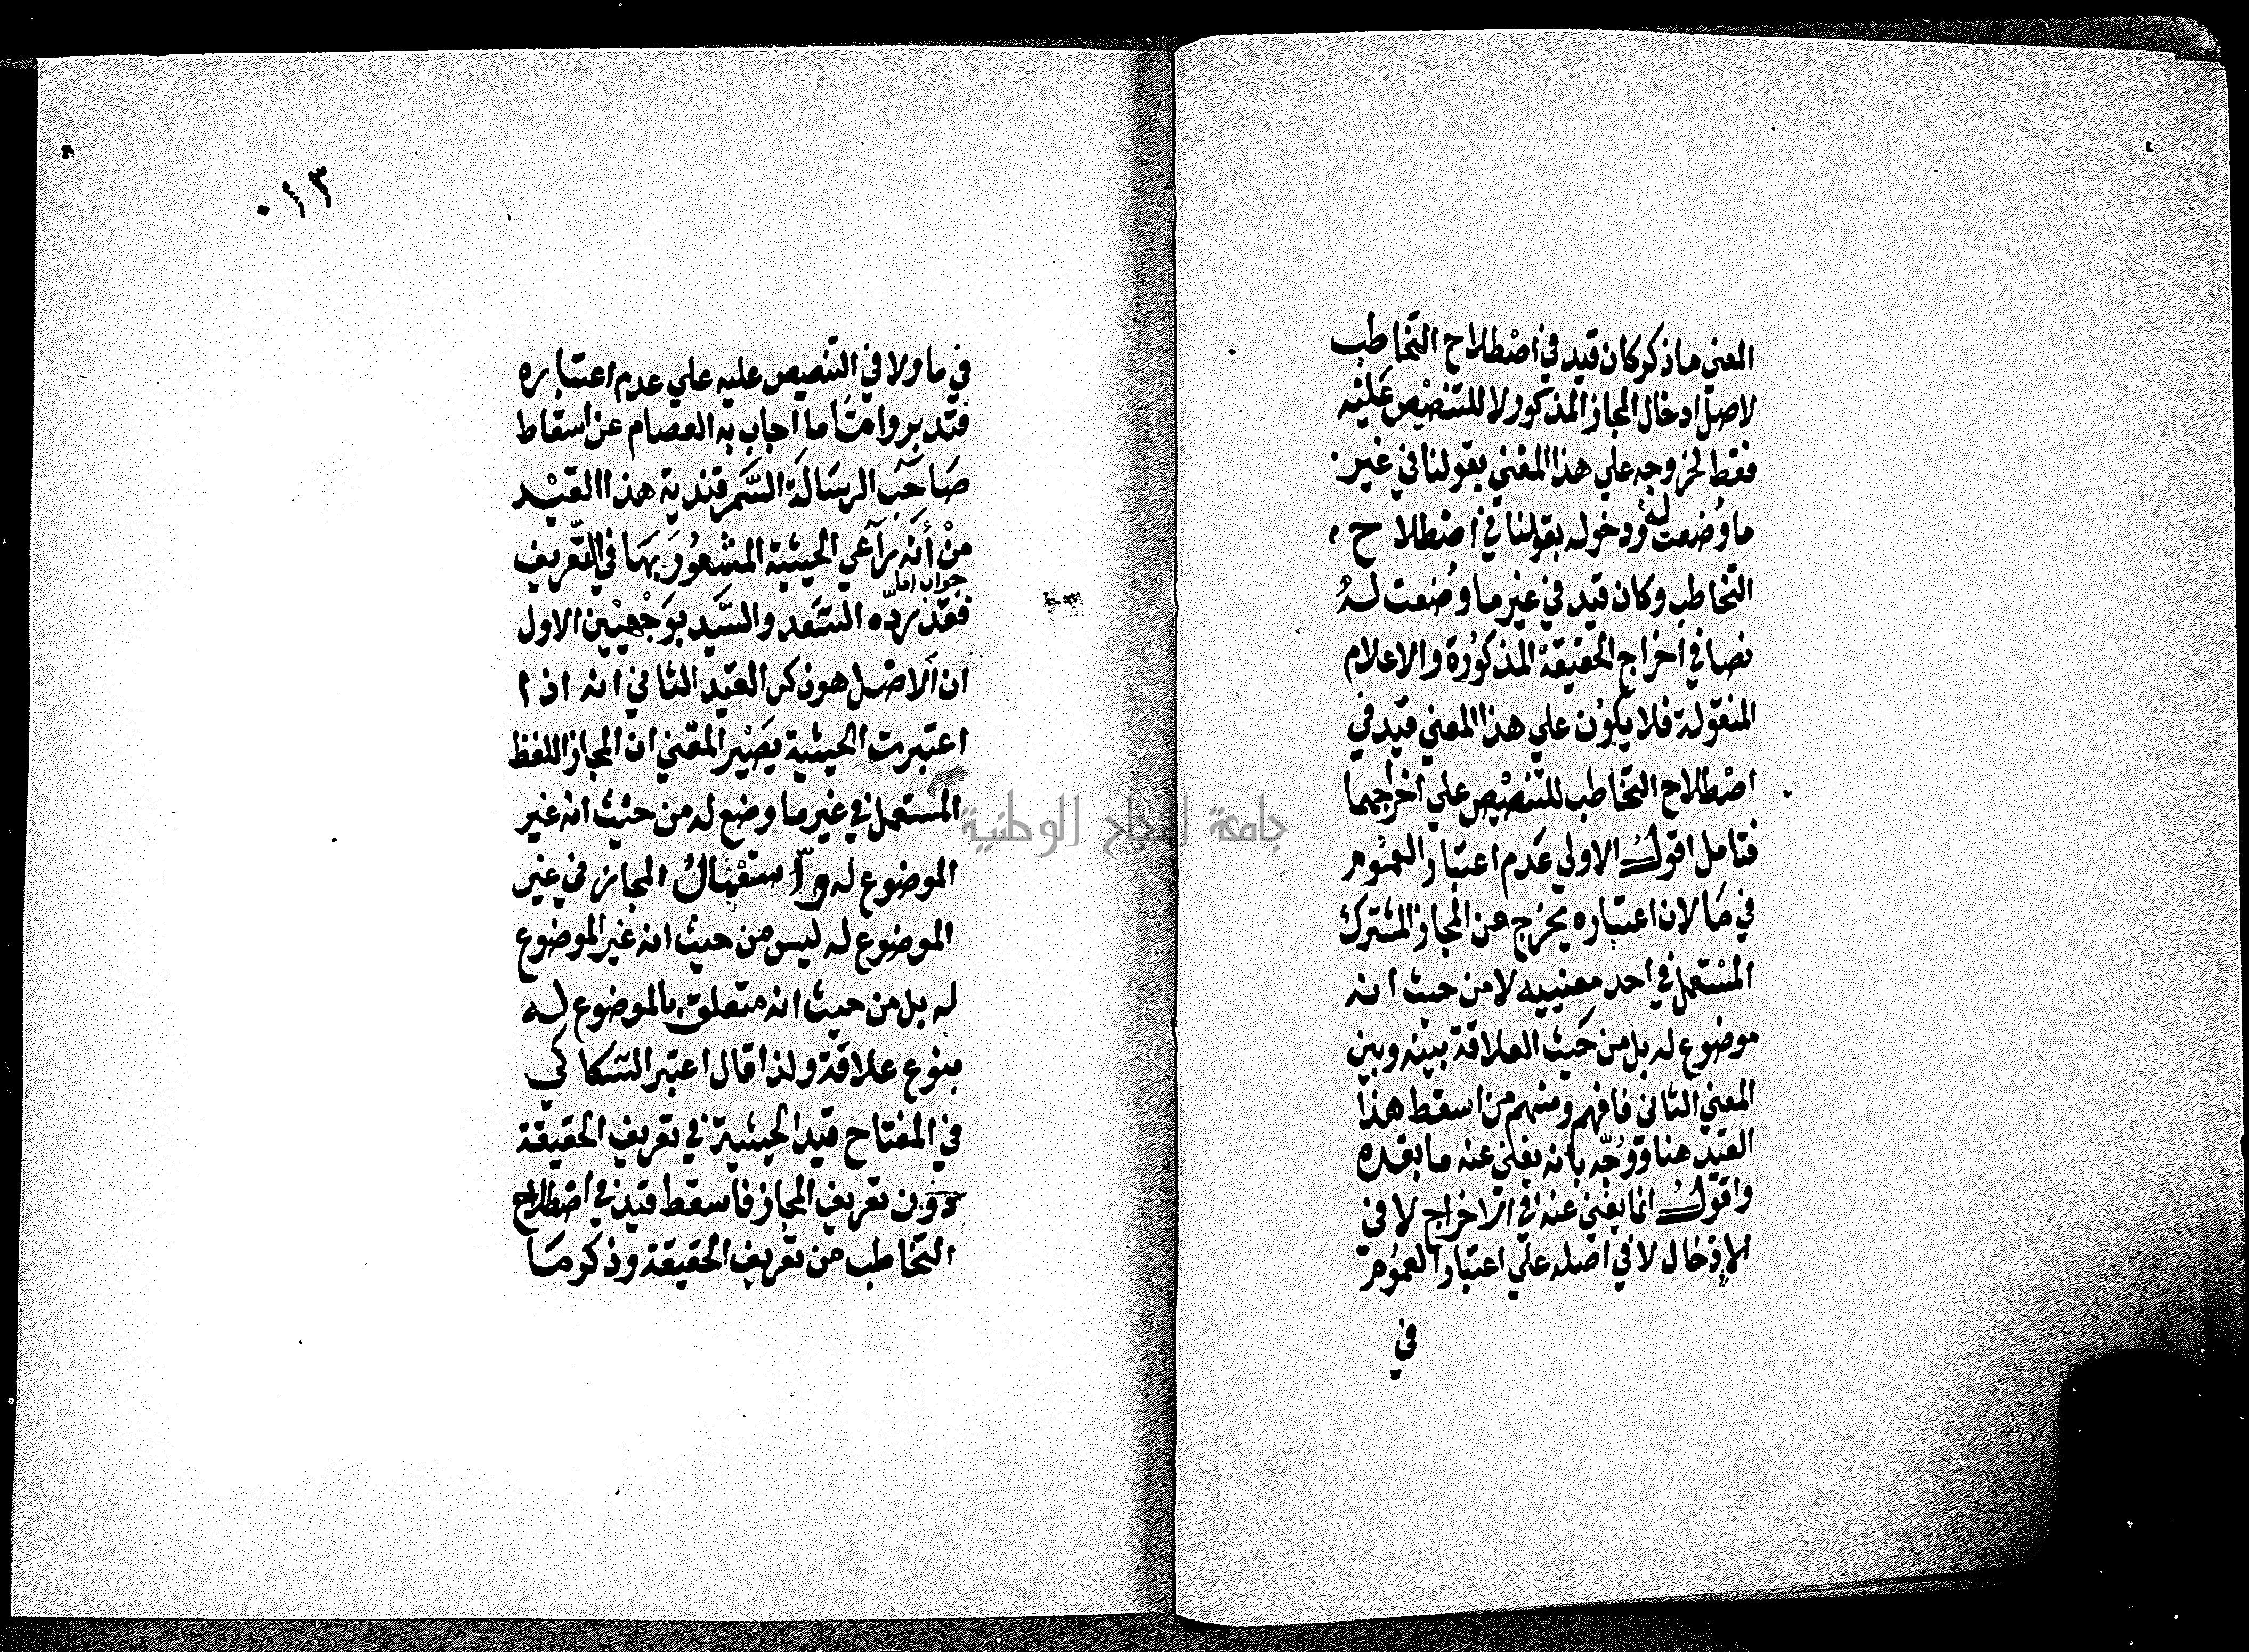 المعني ماذكر كان قيد في اصْطلاح التّخاطب
لاصل ادخال المجاز المذكور لا للتنصْيص عَليْه
فقط لخروجه علي هذا المعْني بقولنا في غير
ما وُضعت له ودخوله بقولنا في اصْطلاح
التّخاطب وكان قيد في غير ما وُضعت لهُ
نصا في اخراج الحقيقة المذكوُرة والاعلام
المنقولة فلا يكوُن علي هذا المعني قيد في
اصْطلاح التخاطب للتنصْيص علي اخراجهما
فتامل اقولُ الاولي عَدم اعتبار العمُوم
في مَا لان اعتباره يخرج عن المجاز المشترك
المسْتعمل في احد معنييه لا من حيث انه
موضوع له بل من حَيث العلاقة بينه وبين
المعني الثاني فافهم ومنهم من اسقط هذا
القيد هنا ووُجّه بانه يغني عنه ما بعده
واقولُ انما يغني عنه في الاخراج لا في
الإدْخال لا في اصله علي اعتبار العمُوم
في
٠١٣
في ما ولا في التنصيص عليه علي عدم اعتباره
فتدبر وامّا ما اجاب به العصام عن اسقاط
صَاحَب الرسَالَة السَّمرقندية هذا القيْد
منْ أنه رآعي الحيثية المشعُورَ بهَا في التّعريف
جواب اما
فقدْ ردّه السّعَد والسَّيَد بوَجْهيْن الاول
ان الاصْل هو ذكر القيد الثاني انه اذا
اعتبرت الحيثية يَصْير المعْني ان المجاز اللفظ
المستعمل في غير ما وضع له من حيْث انه غير
الموضوع له واستعْمالُ المجاز في غير
الموضوع له ليس من حيث انه غير الموضوع
له بل من حيث انه متعلق بالموضوع له
بنوع علاقة ولذا قال اعتبر السّكاكي
في المفتاح قيد الحيثية في تعريف الحقيقة
دون تعريف المجاز فاسقط قيد في اصْطلاح
التّخاطب من تعريف الحقيقة وذكر مَا
جامعة النجاح الوطنية